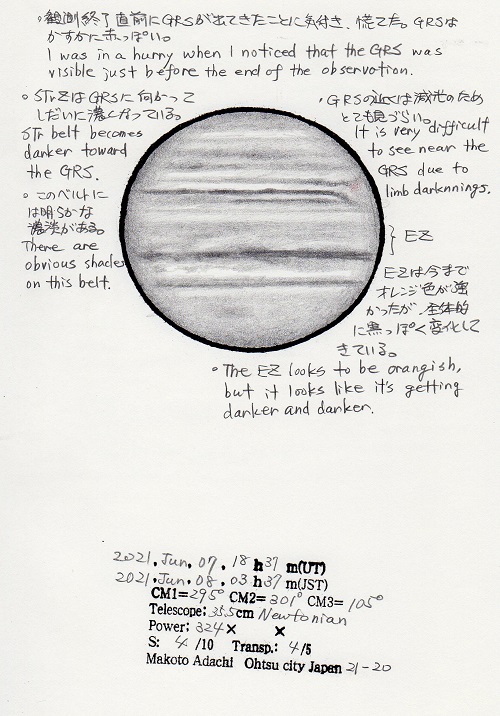 観測終了直前にGRSが出てきたことに気付き、慌てた。GRSは
かすかに赤っぽい。
I was in a hurry when I noticed that the GRS was
visible just before the end of the observation.
STrZはGRSに向かって
しだいに濃くなっている。
STr belt becomes
darker toward
the GRS.
このベルトに
は明らかな
濃淡がある。
There are
obvious shades
on this belt.
GRSの近くは減光のため
とても見づらい。
It is very difficult
to see near the
GRS due to
limb darknnings.
EZ
EZは今まで
オレンジ色が強
かったが、全体的
に黒っぽく変化して
きている。
The EZ looks to be orangish,
but it looks like it's getting
darker and darker.
2021. Jun. 07. 18 h 37 m(UT)
2021. Jun. 08. 03 h 37 m(JST)
CM1= 295° CM2= 301° CM3= 105°
Telescope: 35.5cm Newtonian
Power: 324× ×
S: 4 /10 Transp.: 4/5
Makoto Adachi Ohtsu city Japan 21-20